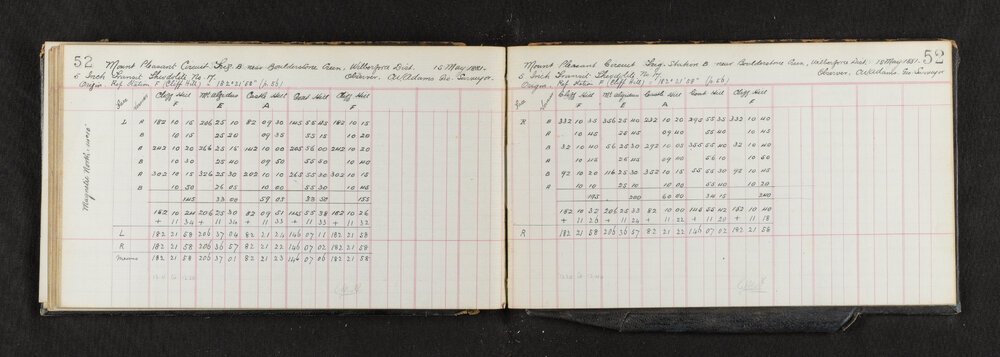 52
Mount Pleasant Circuit Trig. B. near Boulderstone Run, Wilberforce Dist. 15 May 1881.
5 Inch Transit Theodolite No 17. Observer, Adams Geo. Surveyor.
Origin Ref. Station F (Cliff Hill) = 182° 21' 58" (p. 56)
Face Cliff Hill Mt Algidus Castle Hill Goat Hill Cliff Hill
F E A F
Magnetic North
L A 182 10 15 206 25 10 82 09 30 145 55 45 182 10 15
B 10 15 25 20 09 35 55 15 10 20
A 242 10 20 266 25 15 142 10 00 205 56 00 242 10 20
B 10 30 25 40 09 50 55 50 10 40
A 302 10 15 326 25 30 202 10 15 265 55 30 302 10 15
B 10 50 26 05 10 00 55 30 10 45
145 33 00 59 03 33 50 155
182 10 24 206 25 30 82 09 51 145 55 38 182 10 26
+ 11 34 + 11 34 + 11 33 + 11 33 + 11 32
L 182 21 58 206 37 04 82 21 24 146 07 11 182 21 58
R 182 21 58 206 36 57 82 21 22 146 07 02 182 21 58
Means 182 21 58 206 37 01 82 21 23 146 07 06 182 21 58
52
Mount Pleasant Circuit Trig. Station B near Boulderstone Run, Wilberforce Dist. 15 May 1881.
5 Inch Transit Theodolite No 17. Observer, Adams Geo Surveyor
Origin. Ref. Station F (Cliff Hill) = 182° 21' 58" (p. 56)
Face Cliff Hill Mt Algidus Castle Hill Goat Hill Cliff Hill
F E A F
R B 332 10 35 356 25 40 232 10 20 295 55 35 332 10 40
A 10 45 25 45 09 40 55 40 10 45
B 32 10 40 56 25 30 292 10 05 355 55 40 32 10 40
A 10 45 25 45 09 40 56 10 10 50
B 92 10 20 116 25 30 352 10 15 55 55 30 92 10 45
A 10 10 25 10 10 00 55 40 10 20
195 200 60 00 34 15 240
182 10 32 206 25 33 82 10 00 145 55 42 182 10 40
+ 11 26 + 11 24 + 11 22 + 11 20 + 11 18
R 182 21 58 206 36 57 82 21 22 146 07 02 182 21 58